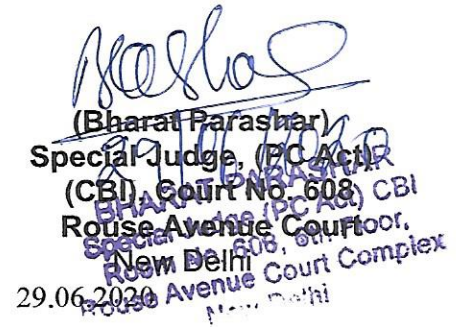 (Bharat Parashar)
29/06/2020
Special Judge, (PC Act),
(CBI), Court No. 608,
Rouse Avenue Court
New Delhi
29.06.2020
BHARAT PARASHAR
Special Judge (PC Act) CBI
Room No. 608, 6th Floor,
Rouse Avenue Court Complex
New Delhi